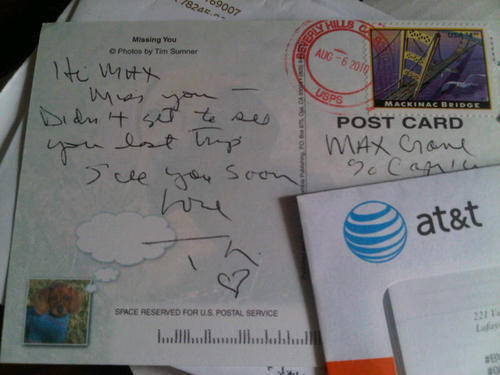 169007
78245-8
Missing You
© Photos by Tim Sumner
Hi MAX
Miss you —
Didn't get to see
you last trip
See you soon
Love
BEVERLY HILLS CA
AUG - 6 2010
USPS
USA
MACKINAC BRIDGE
POST CARD
MAX Crane
at&t
SPACE RESERVED FOR U.S. POSTAL SERVICE
221 
Lafay